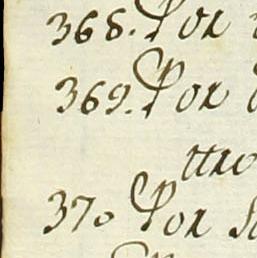 368. Por
369. Por
ttro
370 Por